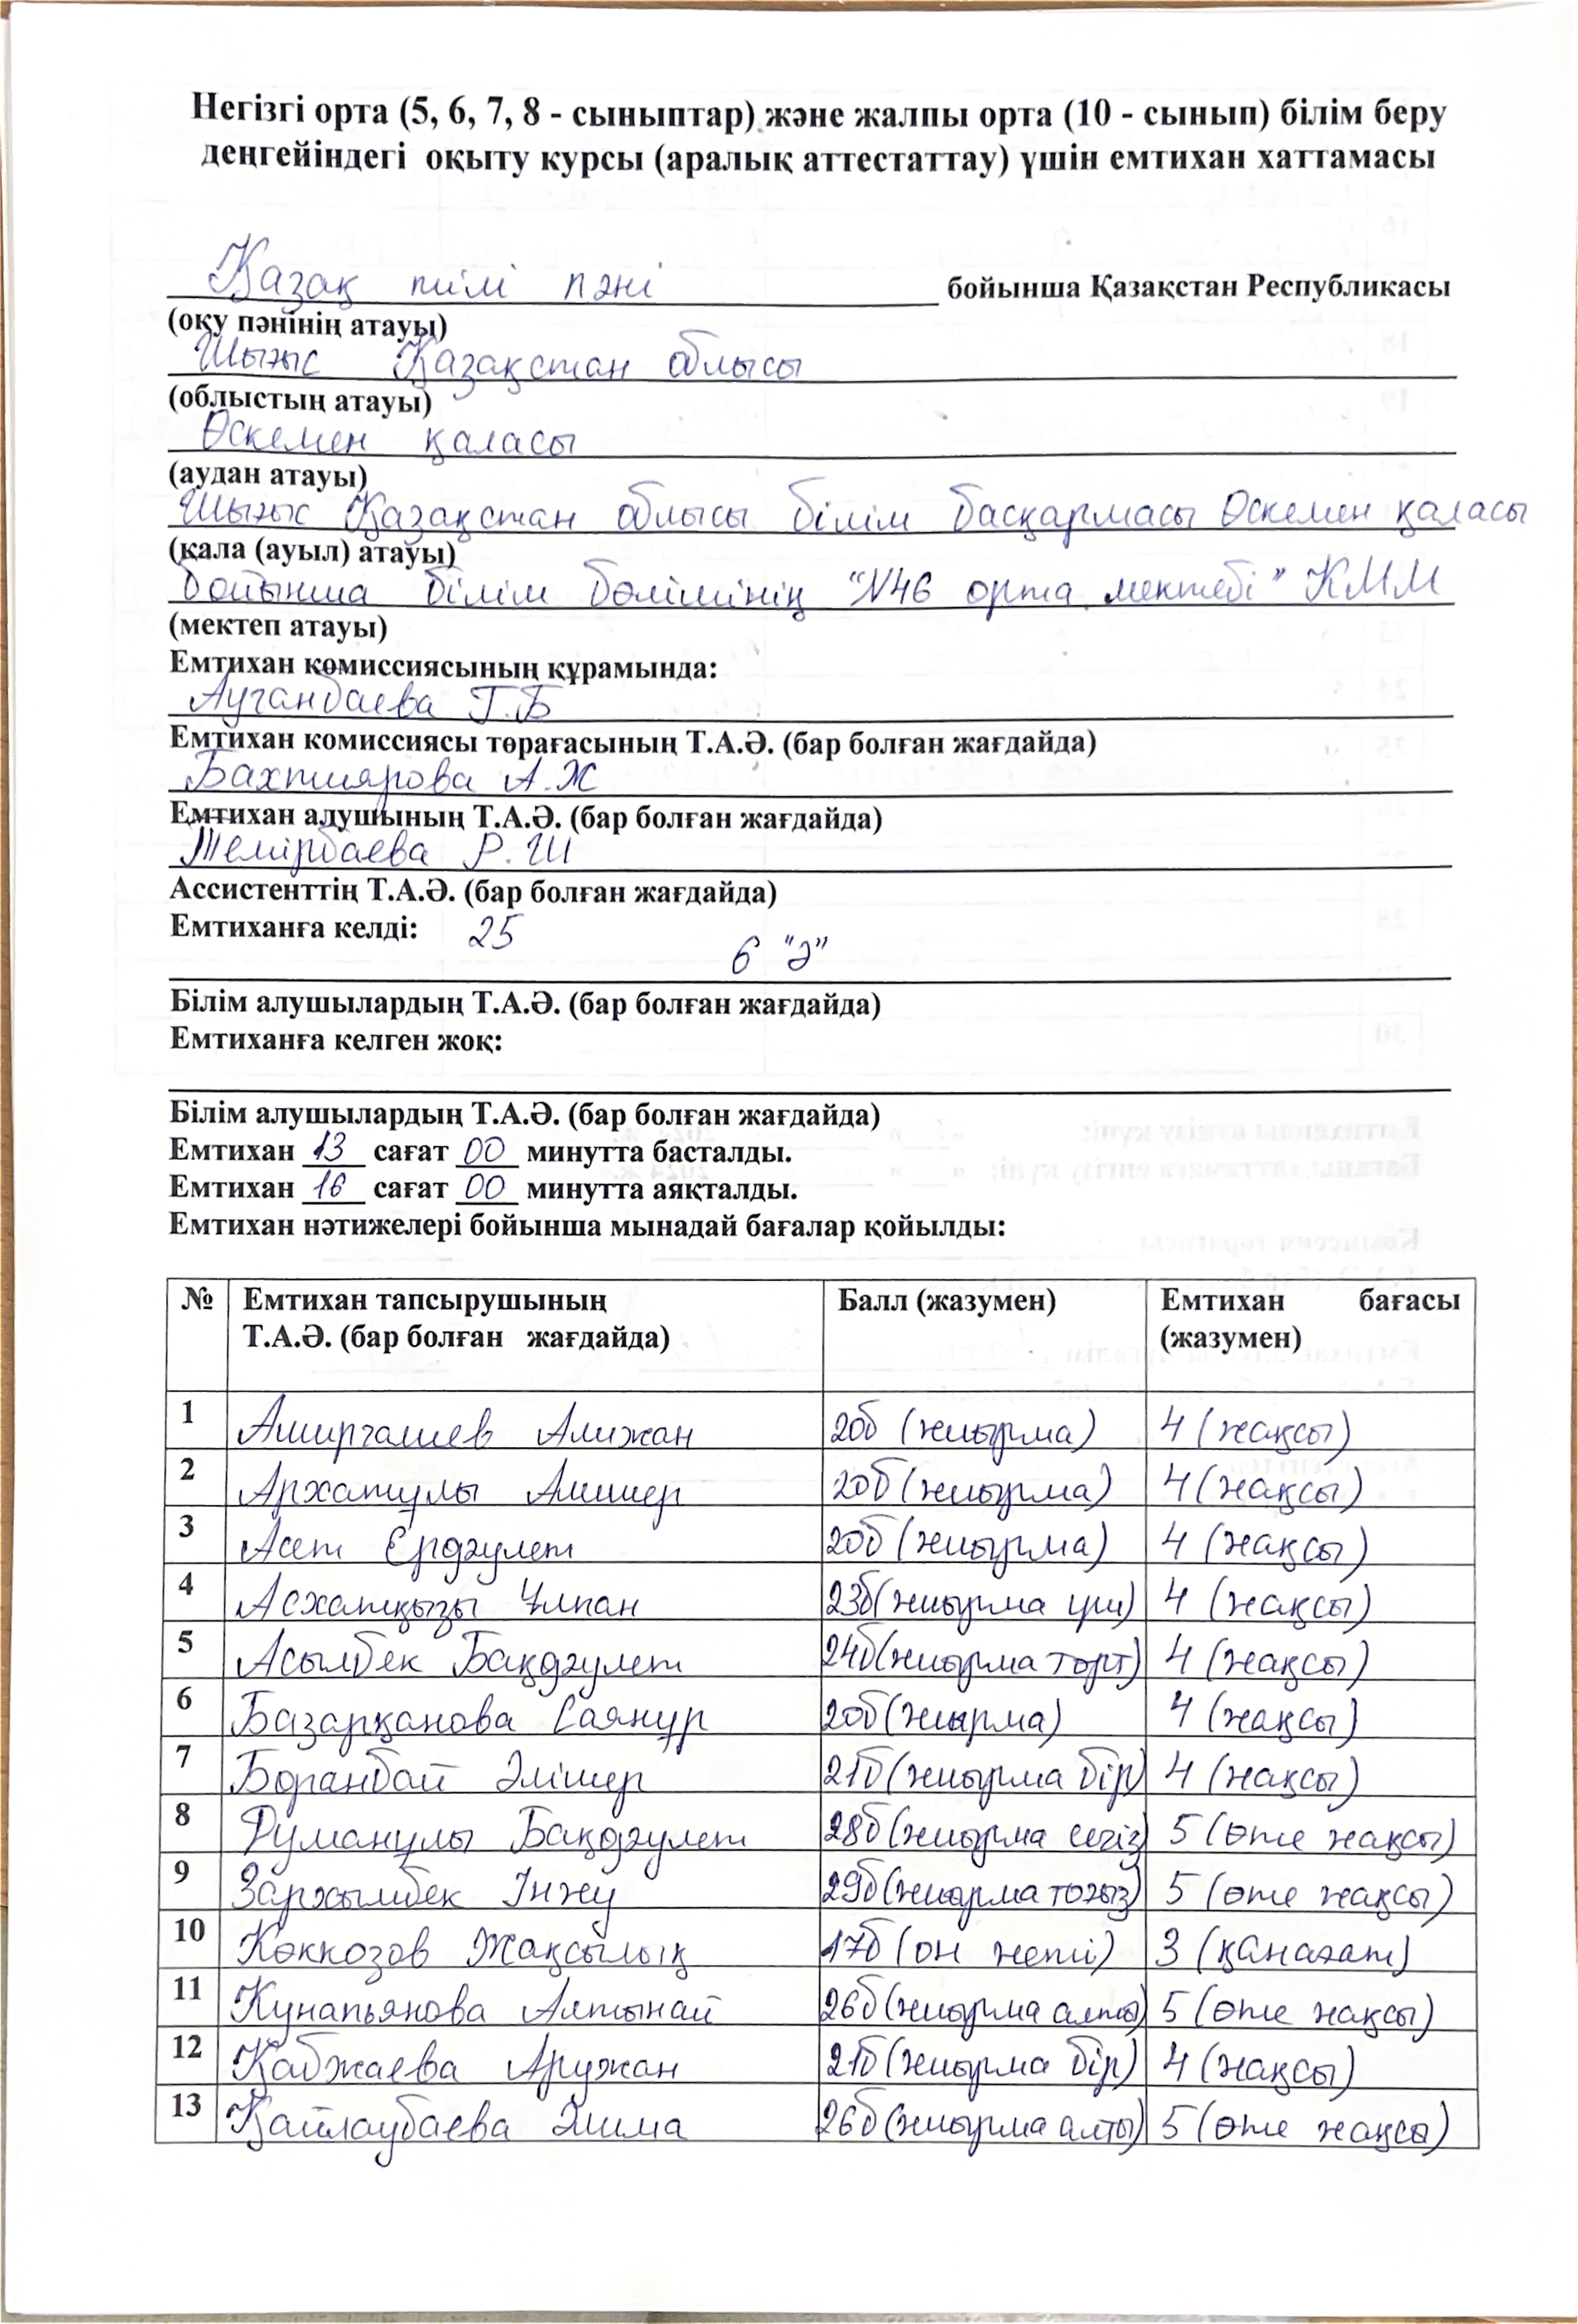 Негізгі орта (5, 6, 7, 8 - сыныптар) және жалпы орта (10 - сынып) білім беру
деңгейіндегі оқыту курсы (аралық аттестаттау) үшін емтихан хаттамасы
Қазақ тілі пәні бойынша Қазақстан Республикасы
(оқу пәнінің атауы)
Шығыс Қазақстан облысы
(облыстың атауы)
Өскемен қаласы
(аудан атауы)
Шығыс Қазақстан облысы білім басқармасы Өскемен қаласы
(қала (ауыл) атауы)
бойынша білім бөлімінің "N46 орта мектебі" КММ
(мектеп атауы)
Емтихан комиссиясының құрамында:
Ауганбаева Г.Б
Емтихан комиссиясы төрағасының Т.А.Ә. (бар болған жағдайда)
Бахтиярова А.Ж
Емтихан алушының Т.А.Ә. (бар болған жағдайда)
Темірбаева Р.Ш
Ассистенттің Т.А.Ә. (бар болған жағдайда)
Емтиханға келді: 25
6 "Ә"
Білім алушылардың Т.А.Ә. (бар болған жағдайда)
Емтиханға келген жоқ:
Білім алушылардың Т.А.Ә. (бар болған жағдайда)
Емтихан 13 сағат 00 минутта басталды.
Емтихан 16 сағат 00 минутта аяқталды.
Емтихан нәтижелері бойынша мынадай бағалар қойылды:
№ Емтихан тапсырушының Т.А.Ә. (бар болған жағдайда) Балл (жазумен) Емтихан бағасы (жазумен)
1 Амиргалиев Алижан 20б (жиырма) 4 (жақсы)
2 Архатұлы Алишер 20б (жиырма) 4 (жақсы)
3 Асет Ердәулет 20б (жиырма) 4 (жақсы)
4 Асхатқызы Ұлпан 23б (жиырма үш) 4 (жақсы)
5 Асылбек Бақдәулет 24б (жиырма төрт) 4 (жақсы)
6 Базарқанова Саянұр 20б (жиырма) 4 (жақсы)
7 Боранбай Әлішер 21б (жиырма бір) 4 (жақсы)
8 Думанұлы Бақдәулет 28б (жиырма сегіз) 5 (өте жақсы)
9 Зархымбек Інжу 29б (жиырма тоғыз) 5 (өте жақсы)
10 Көккозов Жақсылық 17б (он жеті) 3 (қанағат)
11 Кунапьянова Алтынай 26б (жиырма алты) 5 (өте жақсы)
12 Қабжаева Аружан 21б (жиырма бір) 4 (жақсы)
13 Қайлаубаева 26б (жиырма алты) 5 (өте жақсы)